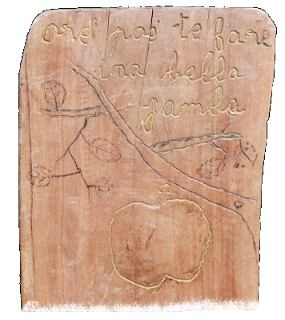 ore pas te fare
una bella
gamba